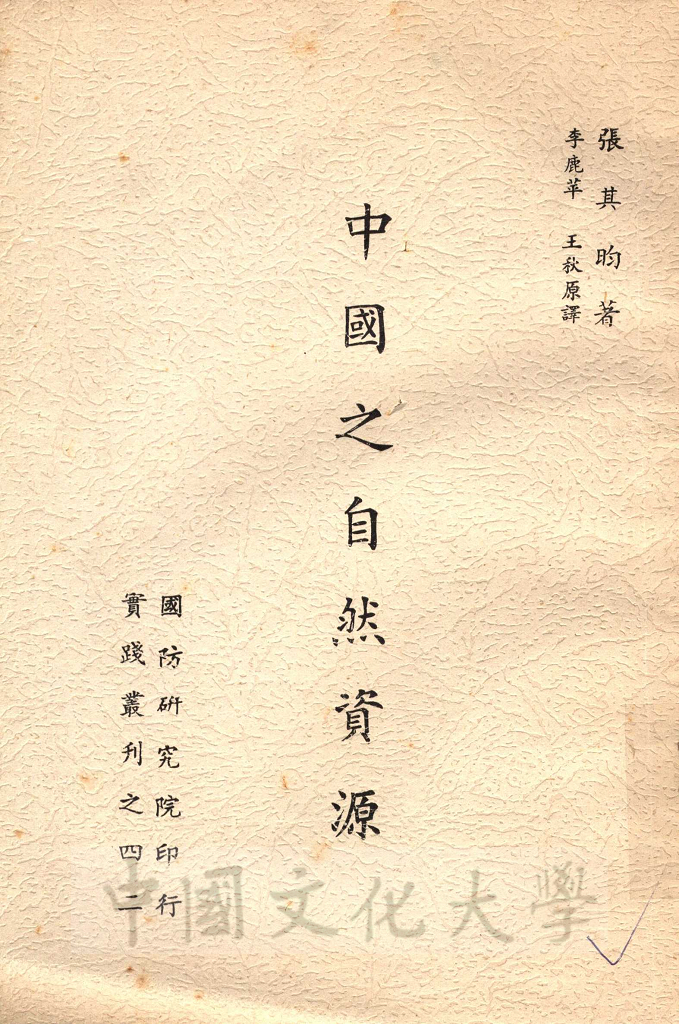 張其昀著
李鹿苹 王秋原譯
中國之自然資源
國防研究院印行
實踐叢刊之四二
中國文化大學